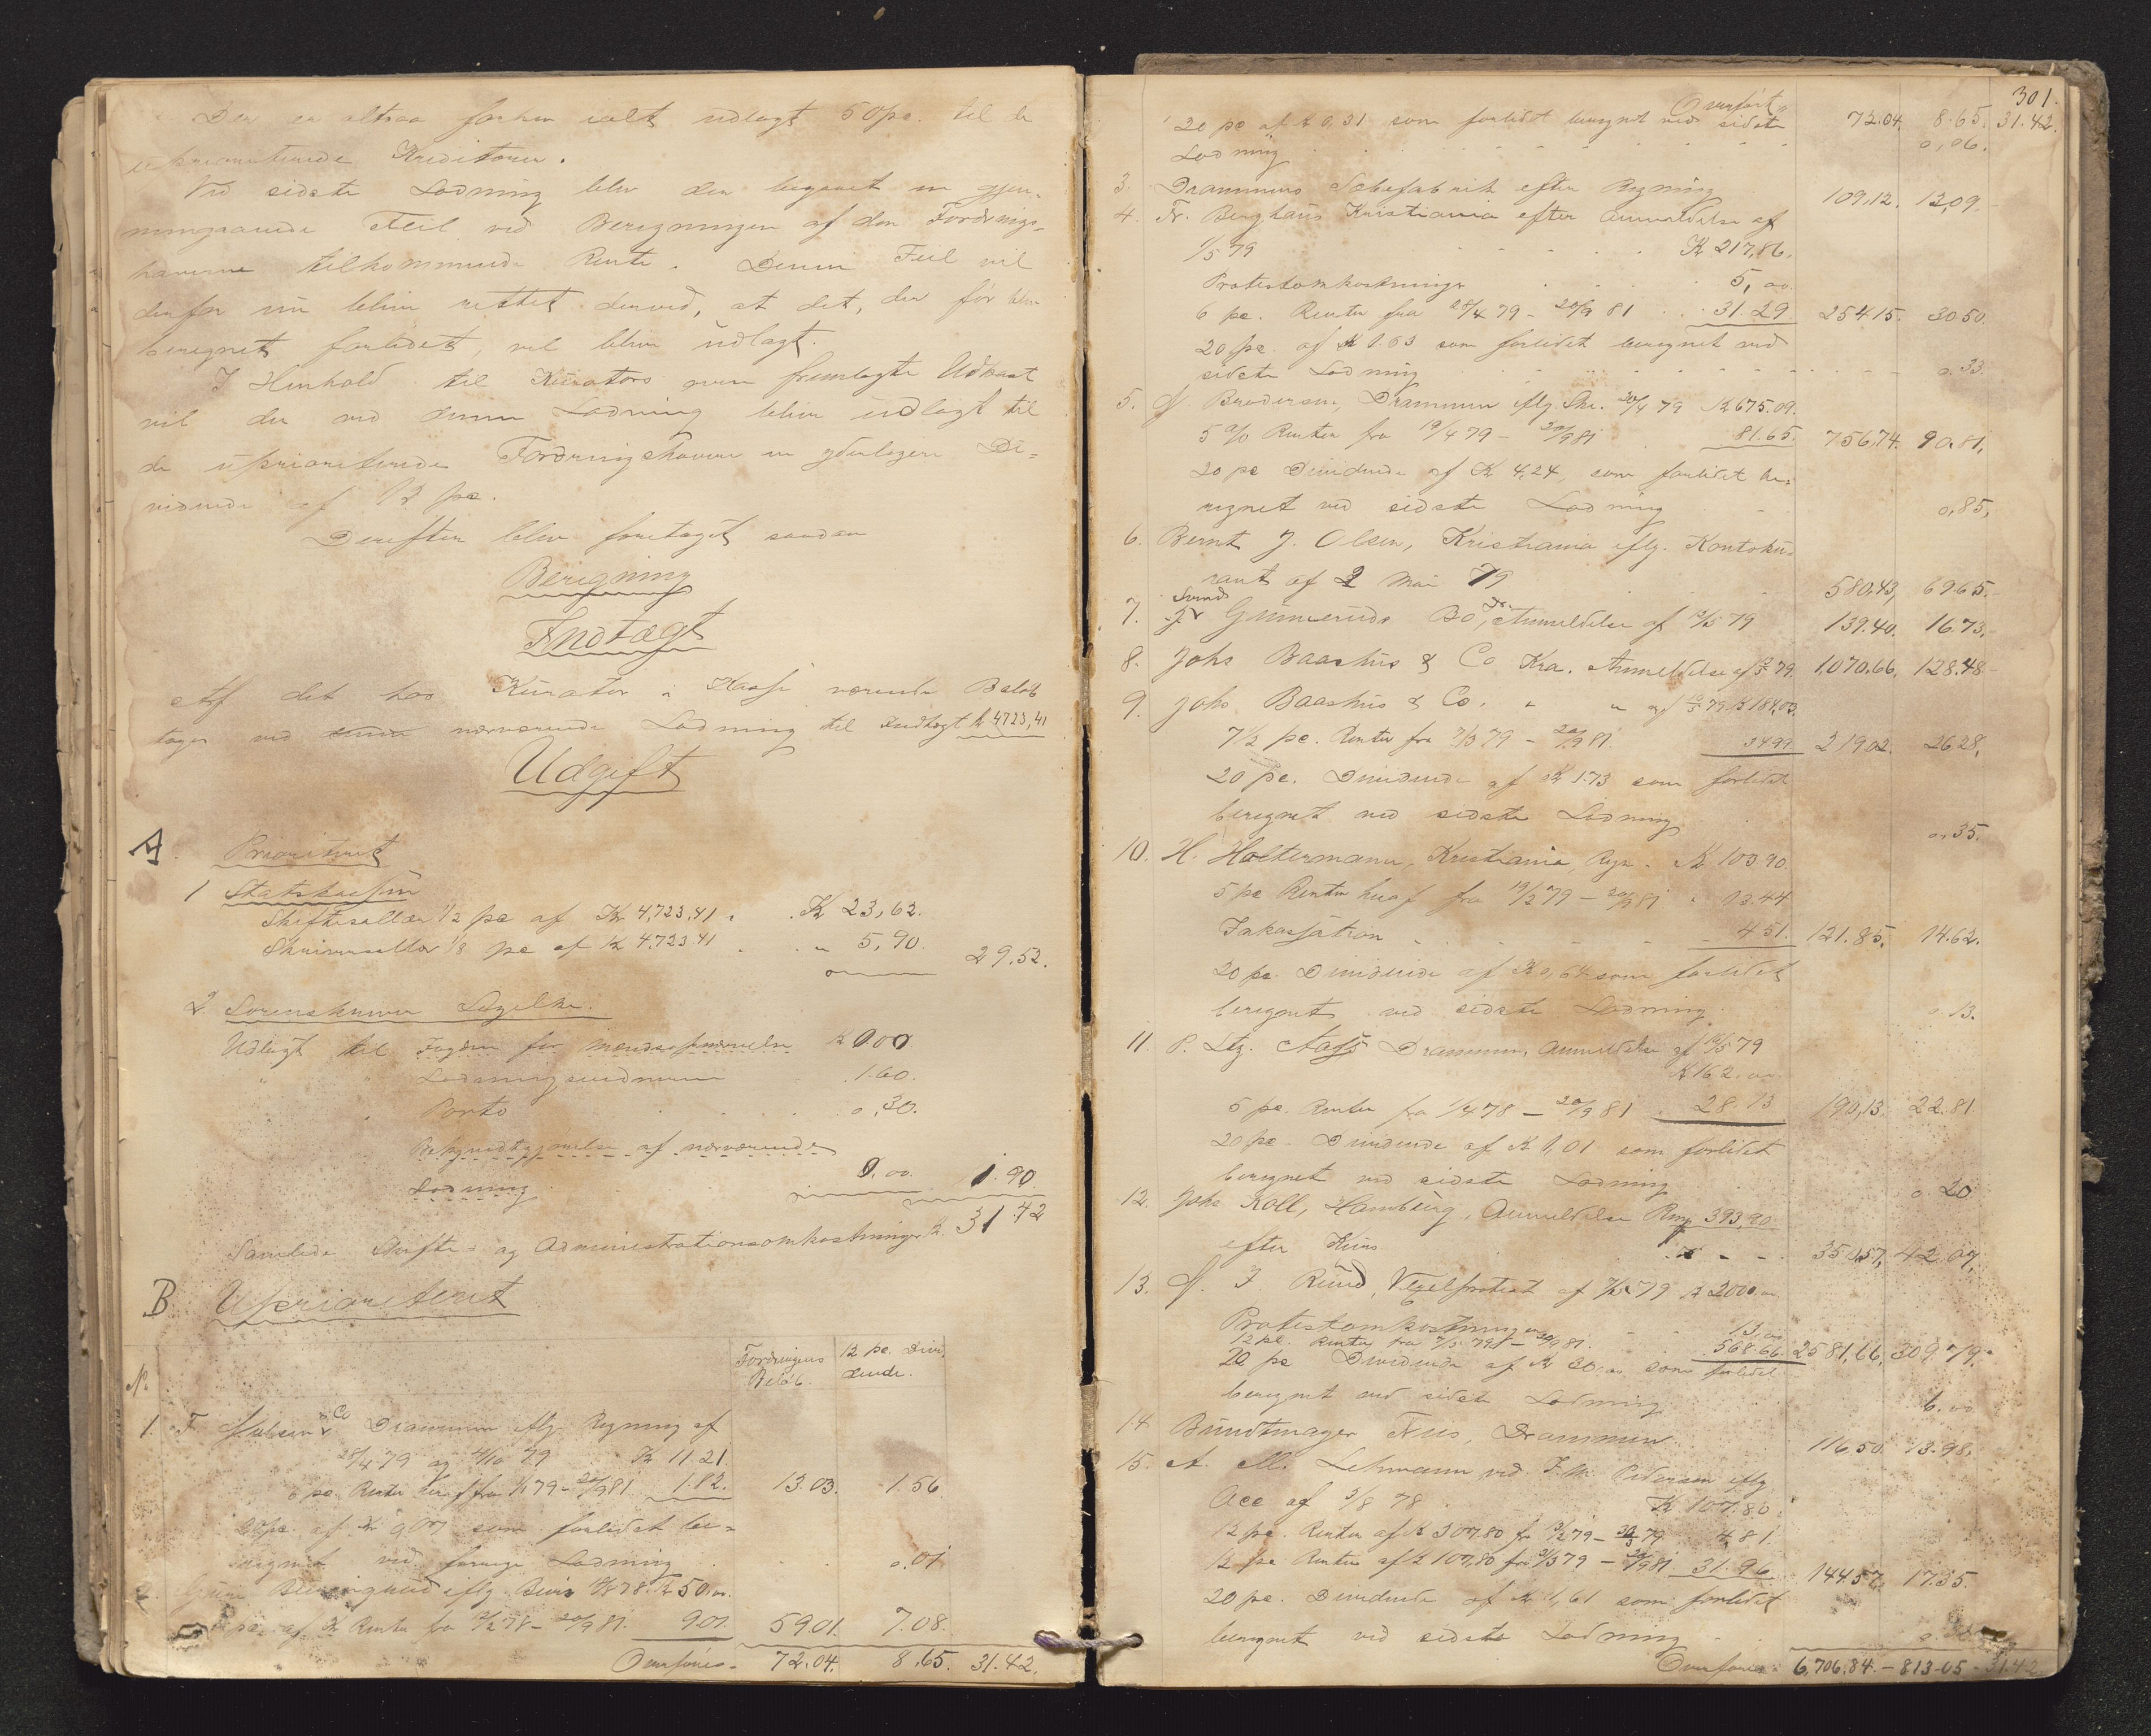 Der er altsaa forhen ialt udlagt 50 pc. til de
uprioriterede Kreditorer.
Ved sidste Lodning blev der begaaet en gjen-
nemgaaende Feil ved Beregningen af den Fordrings-
haverne tilkommende Rente. Denne Feil vil
derfor nu blive rettet derved, at det, der før blev
beregnet forlidet, vil blive udlagt.
I Henhold til Kurators fremlagte Udkast
vil der ved denne Lodning blive udlagt til
de uprioriterede Fordringshavere en yderligere Di-
vidende af 12 pc.
Derefter blev foretaget saadan
Beregning
Indtægt
Af det hos Kurator i Kasse værende Beløb
tages ved nærværende Lodning til Indtægt k 4723,41
Udgift
A. Prioriteret
1 Statskassen
Skiftesallær 1/2 pc af Kr 4,723,41 . . K 23,62.
Skriversallær 1/8 pc af K 4,723.41 . . " 5,90. 29.52.
2. Sorenskriver
Udlagt til Fogden for Mændsopnævnelse K 0 00
" " Lodningsmændene 1.60.
" Porto . . . . 0.30.
af nærværende
Lodning 0,00. 1.90
Samlede Skifte- og Administrationsomkostninger k. 31.42
B. Uprioriteret
No Fordringens Beløb. 12 pc. Divi- dende.
1. F. & Co Drammen iflg. Regning af
28/4 79 og 4/10 79 K 11.21
6 pc. Renter heraf fra 79 - 20/9 81 1.82. 13.03. 1.56
20 pc. af Kr 0,07 som forlidet be-
regnet ved forrige Lodning . . . 0.01
2. iflg. Bevis 78. K 50.00
pc. af K Renter fra 78 - 20/9 81. 9.01 59.01. 7.08.
Overføres. 72.04. 8.65. 31.42.
301.
Overført 72.04. 8.65. 31.42.
20 pc af K 0,31 som forlidet beregnet ved sidste
Lodning . . . . . . 0,06.
3. Drammens Sæbefabrik efter Regning 109,12. 13,09.
4. Fr. Berghaus Kristiania efter Anmeldelse af
1/5 79 . . . . K 217,86.
Protestomkostninger . . . 5,00
6 pc. Renter fra 28/4 79 - 20/9 81 . . 31.29 254.15. 30.50.
20 pc. af K 1.63 som forlidet beregnet ved
sidste Lodning . . . . . 0.33.
5. Brodersen, Drammen iflg. Skr. 20/4 79 K 675.09.
5 % Renter fra 19/4 79 - 20/9 81 81.65. 756,74. 90.81,
20 pc Dividende af K 4,24, som forlidet be-
regnet ved sidste Lodning 0,85,
6. Bernt J. Olsen, Kristiania iflg. Kontoku-
rant af 2 Mai 79 580,43, 69.65.
7. Gunneruds Bo, Anmeldelse af 79 139.40. 16.73.
8. Johs Baashus & Co Kra. Anmeldelse af 79. 1,070,66. 128.48
9. Johs. Baashus & Co. " " af 79 K 184,03.
7 1/2 pc. Renter fra 79 - 20/9 81. 34.99 219.02. 26.28,
20 pc. Dividende af K 1.73 som forlidet
beregnet ved sidste Lodning 0,35.
10. H. Holtermann, Kristiania, Regn. K 103.90.
5 pc Renter heraf fra 79 - 20/9 81 " 13.44
Inkassation . . . . 4.51. 121.85. 14.62.
20 pc. Dividende af K 0,64 som forlidet
beregnet ved sidste Lodning 0 13.
11. P. Ltz. Aass Drammen, Anmeldelse af 79
K 162.00.
5 pc. Renter fra 1/4 78 - 20/9 81 28.13 190,13. 22.81
20 pc. Dividende af K 1,01 som forlidet
beregnet ved sidste Lodning 0.20
12. Johs Koll, Hamburg, Anmeldelse Rm 393,90
efter Kurs . . . 350,57, 42.07,
13. J. Ruud, Vexelprotest af 79 K 2000.00
Protestomkostninger . . 13,00
12 pc. Renter fra 79 - 20/9 81. 568.66. 2581,66. 309.79.
20 pc Dividende af K 30.00 som forlidet
beregnet ved sidste Lodning 6.00
14. Bundtmager Friis, Drammen 116.50. 13.98.
15. A. M. Lehmann ved Pedersen iflg
Acc af 5/8 78 K 107.80.
12 pc. Renter af K 307.80 fra 79 - 79 4,81.
12 pc Renter af K 107,80 fra 79 - 20/9 81 31.96 144.57. 17.35.
20 pc. Dividende af K 1,61 som forlidet
beregnet ved sidste Lodning
Overføres. 6,706.84. - 813.05 - 31.42